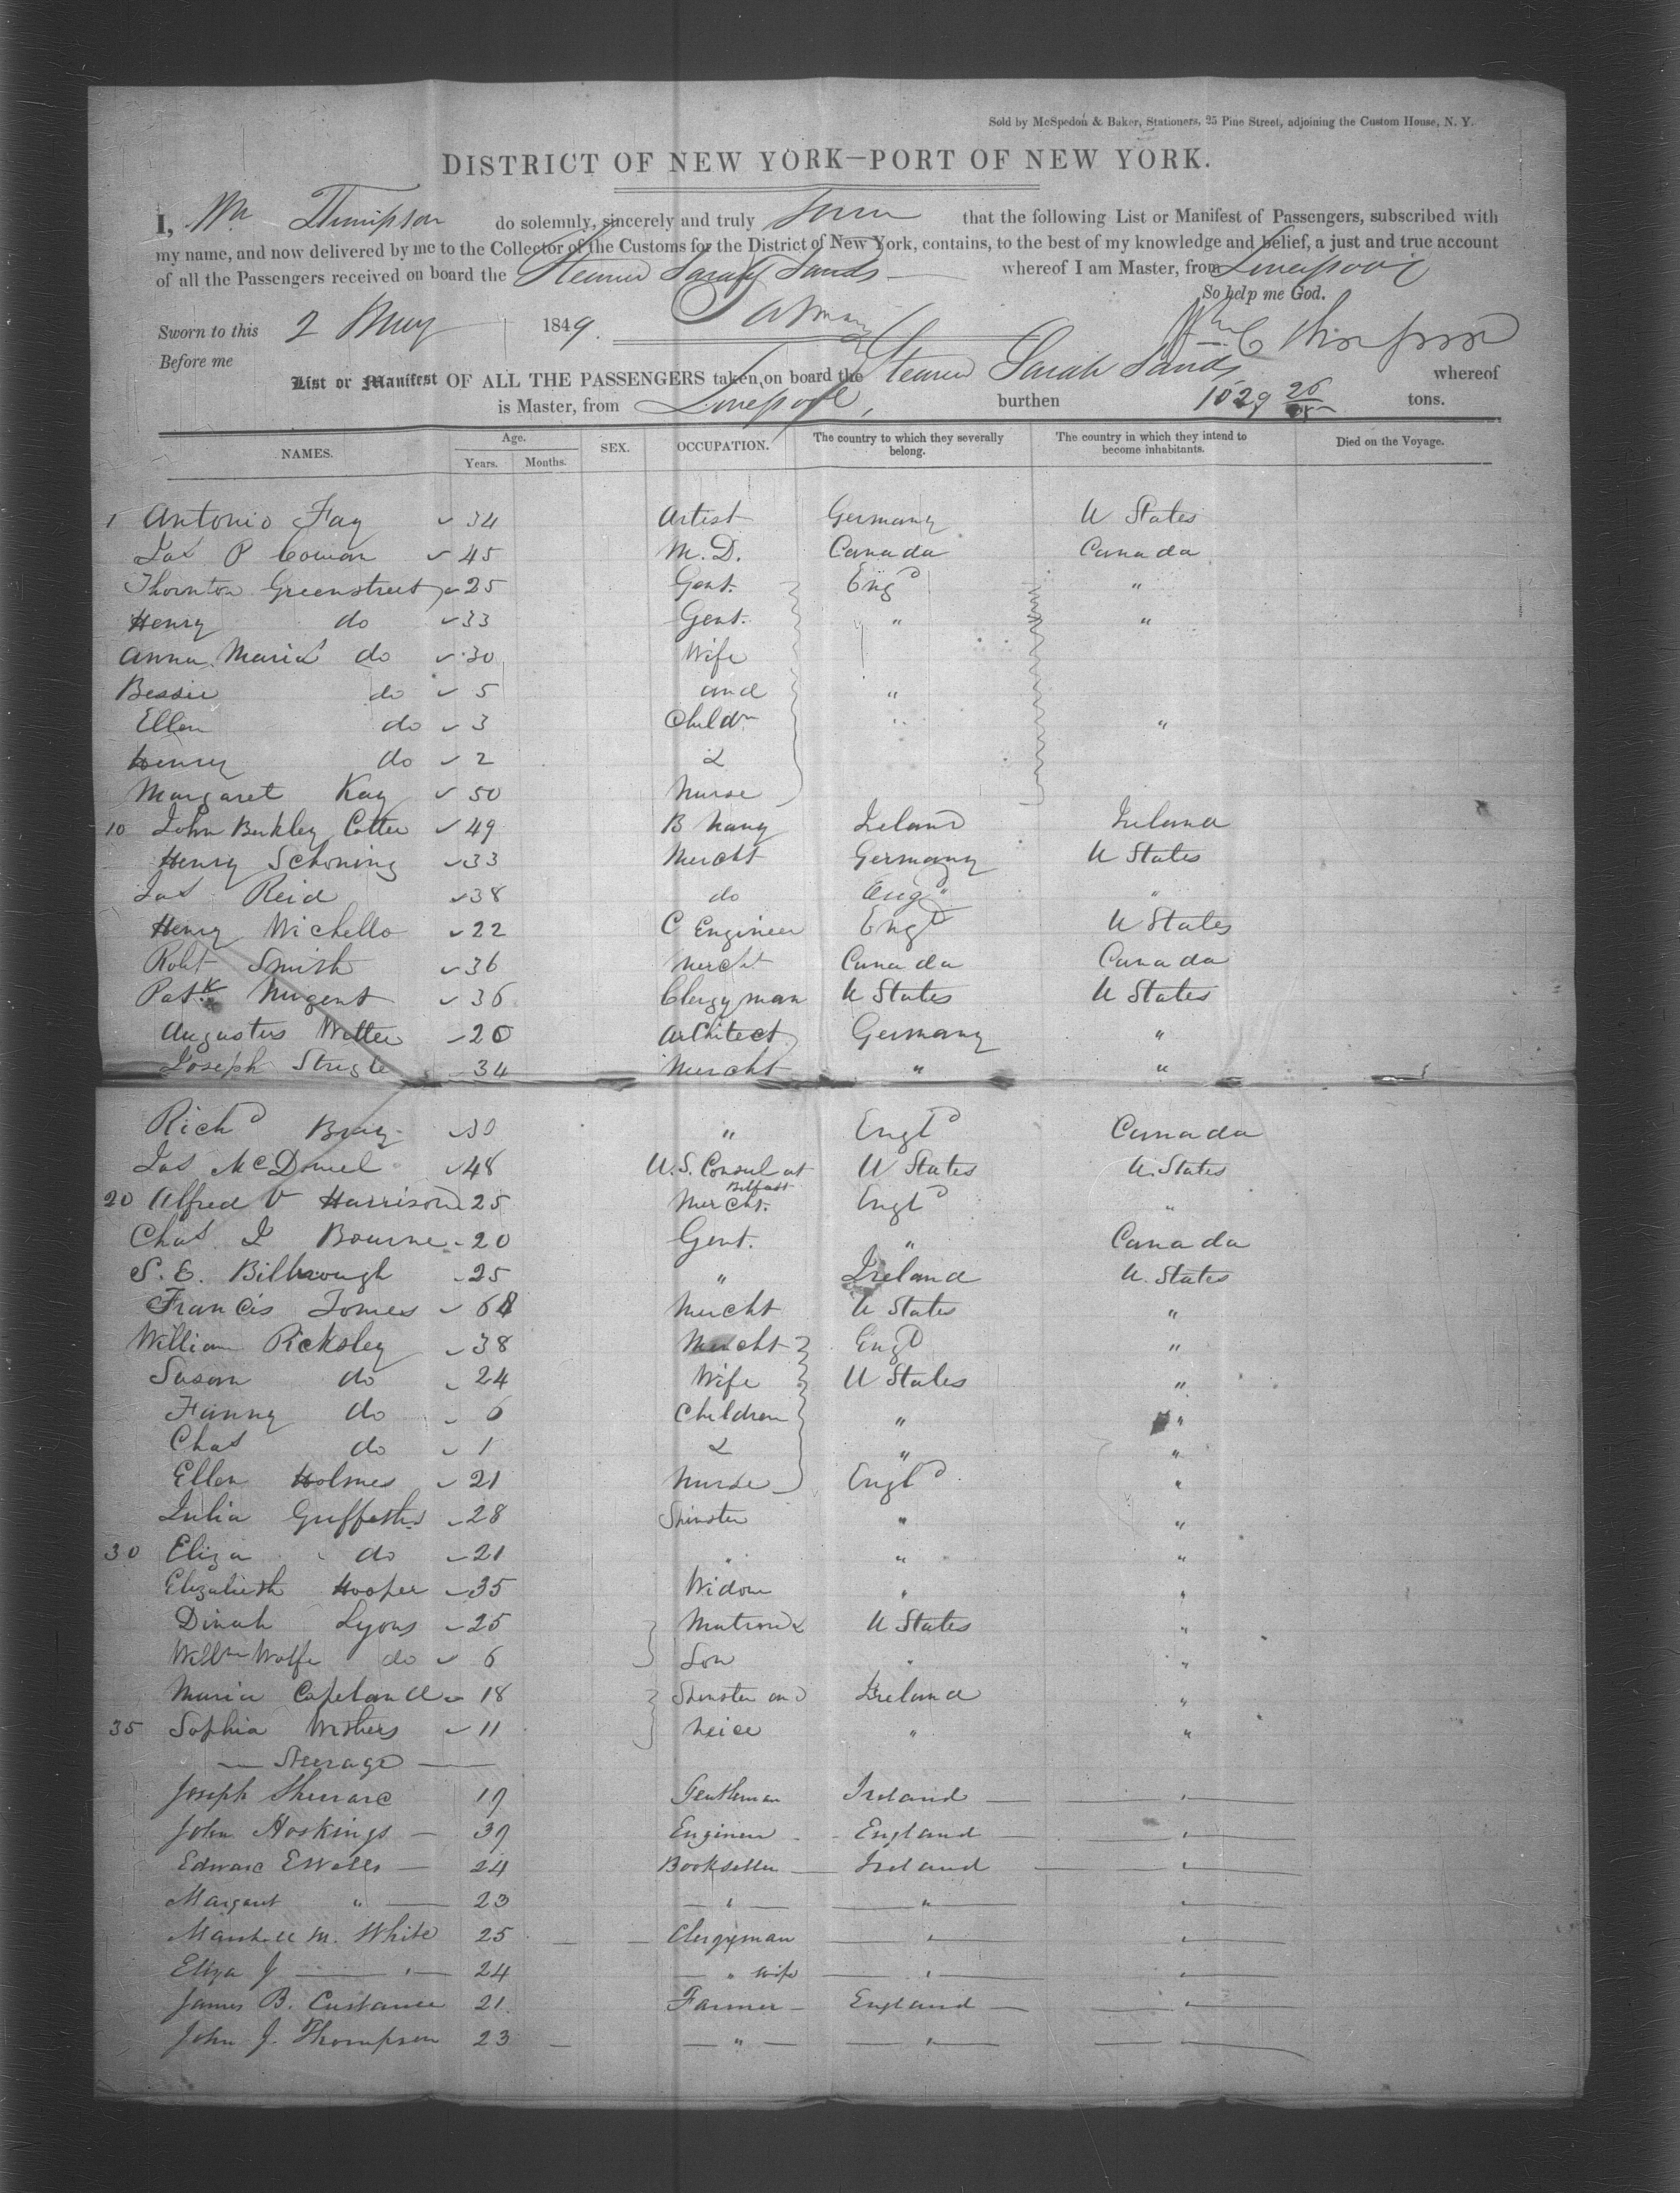 Sold by McSpedon & Baker, Stationers, 25 Pine Street, adjoining the Custom House, N. Y.
DISTRICT OF NEW YORK—PORT OF NEW YORK.
I, Wm Thompson do solemnly, sincerely and truly swear that the following List or Manifest of Passengers, subscribed with
my name, and now delivered by me to the Collector of the Customs for the District of New York, contains, to the best of my knowledge and belief, a just and true account
of all the Passengers received on board the Steamer Sarah Sands whereof I am Master, from Liverpool
So help me God.
Sworn to this 2 May 1849. Wm C Thompson
Before me
List or Manifest OF ALL THE PASSENGERS taken on board the Steamer Sarah Sands whereof
is Master, from Liverpool, burthen tons.
NAMES. Age. Years. Months. SEX. OCCUPATION. The country to which they severally belong. The country in which they intend to become inhabitants. Died on the Voyage.
1 Antonio Fay 34 Artist Germany U States
Jas P Cowan 45 M.D. Canada Canada
Thornton Greenstreet 25 Gent. Engd "
Henry do 33 Gent. " "
Anna Maria do 30 Wife
Bessie do 5 and "
Ellen do 3 Childn " "
Henry do 2 &
Margaret Kay 50 Nurse
10 John Berkley Cotter 49 B Navy Ireland Ireland
Henry Schoning 33 Mercht Germany U States
Jas Reid 38 do Engd "
Henry Michello 22 C Engineer Engd U States
Robt Smith 36 Mercht Canada Canada
Patk Nugent 36 Clergyman U States U States
Augustus Witter 26 Architect Germany "
Joseph Strigle 34 Mercht " "
Richd Bray 30 " Engld Canada
Jas McDowel 48 U.S. Consul at Belfast U States U. States
20 Alfred V Harrison 25 Mercht. Engld "
Chas. J Bourne 20 Gent. " Canada
S. E. Bilbrough 25 " Ireland U. States
Francis Tomes 68 Mercht U States "
William Ricksley 38 Mercht Engd "
Susan do 24 Wife U States "
Fanny do 6 Children " "
Chas do 1 & " "
Ellen Holmes 21 Nurse Engld "
Julia Griffeths 28 Spinster " "
30 Eliza do 21 " " "
Elizabeth Hooper 35 Widow " "
Dinah Lyons 25 Matron & U States "
Willm Wolfe do 6 Son " "
Maria Copeland 18 Spinster and Ireland "
35 Sophia Withers 11 Neice " "
— Steerage —
Joseph Sherrard 19 Gentleman Ireland — "
John Hoskings — 39 Engineer - England — "
Edward E Wells — 24 Bookseller — Ireland — "
Margaret " — 23 — " — " — "
Marshall M. White 25 Clergyman — " — "
Eliza J — " — 24 — " Wife — " — "
James B. Custance 21 Farmer — England — "
John J. Thompson 23 — " — " — "